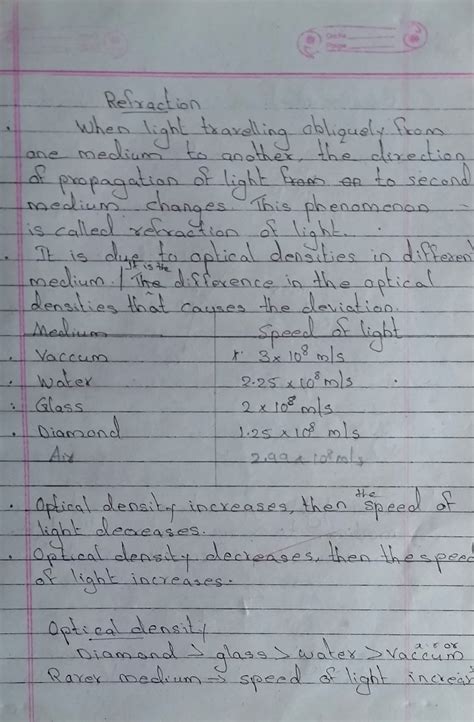 Date
Page
Refraction
. When light travelling obliquely from
one medium to another, the direction
of propagation of light from or to second
medium changes. This phenomenon -
is called refraction of light.
. It is due to optical densities in different
medium. / It is the The difference in the optical
densities that causes the deviation.
Medium Speed of light
. Vaccum 3 x 10⁸ m/s
. Water 2.25 x 10⁸ m/s .
. Glass 2 x 10⁸ m/s
. Diamond 1.25 x 10⁸ m/s
Air 2.99 x 10⁸ m/s
. Optical density increases, then the speed of
light decreases.
. Optical density decreases, then the speed
of light increases.
Optical density
Diamond > glass > water > air or vaccum
Rarer medium → speed of light increas